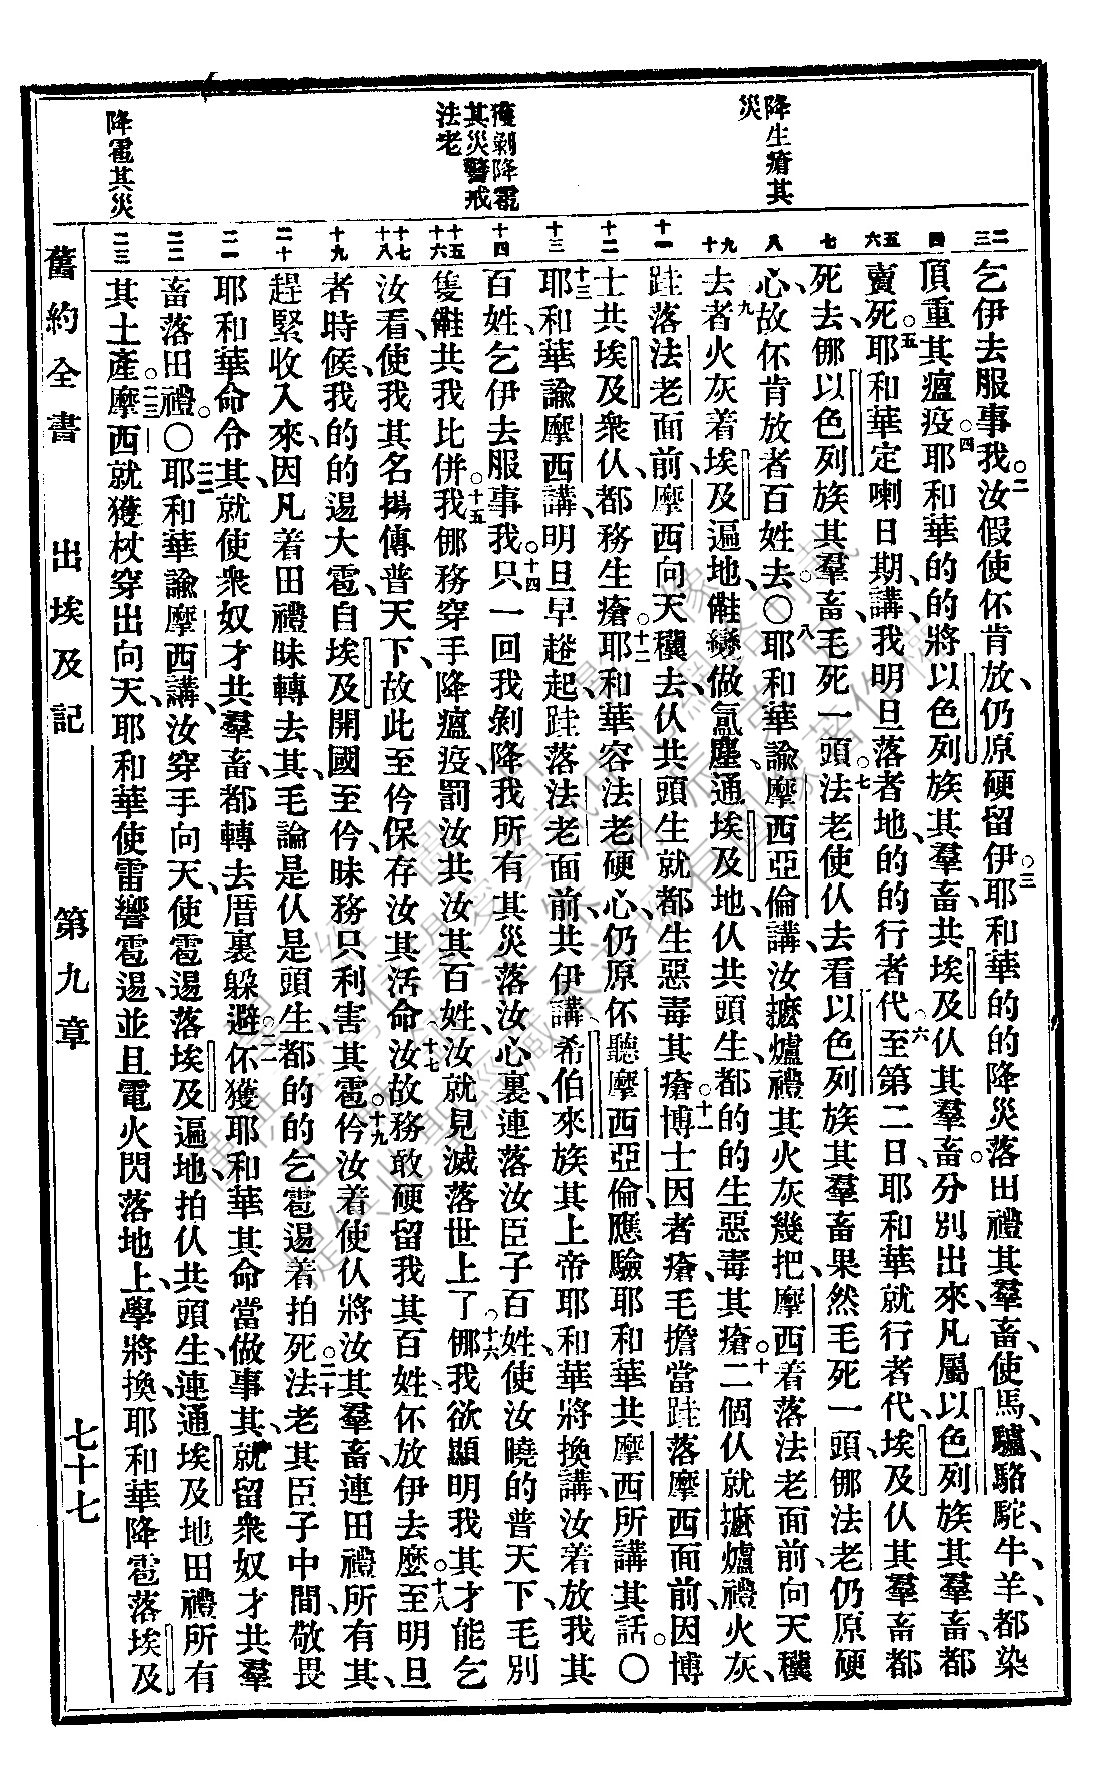 降生瘡其
災
獲剝降雹
其災警戒
法老
降雹其災
二 三 四 五 六 七 八 九 十 十一 十二 十三 十四 十五 十六 十七 十八 十九 二十 二一 二二 二三
乞伊去服事我。二汝假使伓肯放、仍原硬留伊。三耶和華的的降災落田禮其羣畜、使馬、驢、駱駝、牛、羊、都染
頂重其瘟疫。四耶和華的的將以色列族其羣畜、共埃及仈其羣畜分別出來、凡屬以色列族其羣畜、都
賣死。五耶和華定喇日期、講、我明旦落者地、的的行者代。六至第二日、耶和華就行者代、埃及仈其羣畜都
死去、㑚以色列族其羣畜毛死一頭。七法老使仈去看以色列族其羣畜、果然毛死一頭、㑚法老仍原硬
心、故伓肯放者百姓去。〇八耶和華諭摩西亞倫講、汝搋爐禮其火灰幾把、摩西着落法老面前向天䆁
去。九者火灰着埃及遍地、𠆧變做氳塵、通埃及地、仈共頭生、都的的生惡毒其瘡。十二個仈就搋爐禮火灰、
跬落法老面前、摩西向天䆁去、仈共頭生就都生惡毒其瘡。十一博士因者瘡、毛擔當跬落摩西面前、因博
士共埃及衆仈、都務生瘡。十二耶和華容法老硬心、仍原伓聽摩西亞倫、應驗耶和華共摩西所講其話。〇
十三耶和華諭摩西講、明旦早趆起、跬落法老面前、共伊講、希伯來族其上帝耶和華將換講、汝着放我其
百姓、乞伊去服事我。十四只一回我剝降我所有其災落汝心裏、連落汝臣子百姓、使汝曉的普天下、毛別
隻𠆧共我比併。十五我㑚務穿手降瘟疫、罰汝共汝其百姓、汝就見滅落世上了。十六㑚我欲顯明我其才能乞
汝看、使我其名揚傳普天下、故此至仱保存汝其活命。十七汝故務敢硬留我其百姓、伓放伊去麼。十八至明旦
者時候、我的的逿大雹、自埃及開國至仱、昧務只利害其雹。十九仱汝着使仈將汝其羣畜、連田禮所有其、
趕緊收入來、因凡着田禮昧轉去其、毛論是仈是頭生、都的的乞雹逿着拍死。二十法老其臣子中間、敬畏
耶和華命令其、就使衆奴才共羣畜、都轉去厝裏躲避。二一伓獲耶和華其命當做事其、就留衆奴才共羣
畜落田禮。〇二二耶和華諭摩西講、汝穿手向天、使雹逿落埃及遍地、拍仈共頭生、連通埃及地田禮所有
其土產。二三摩西就獲杖穿出向天、耶和華使雷響雹逿、並且電火閃落地上、學將換耶和華降雹落埃及
舊約全書 出埃及記 第九章 七十七